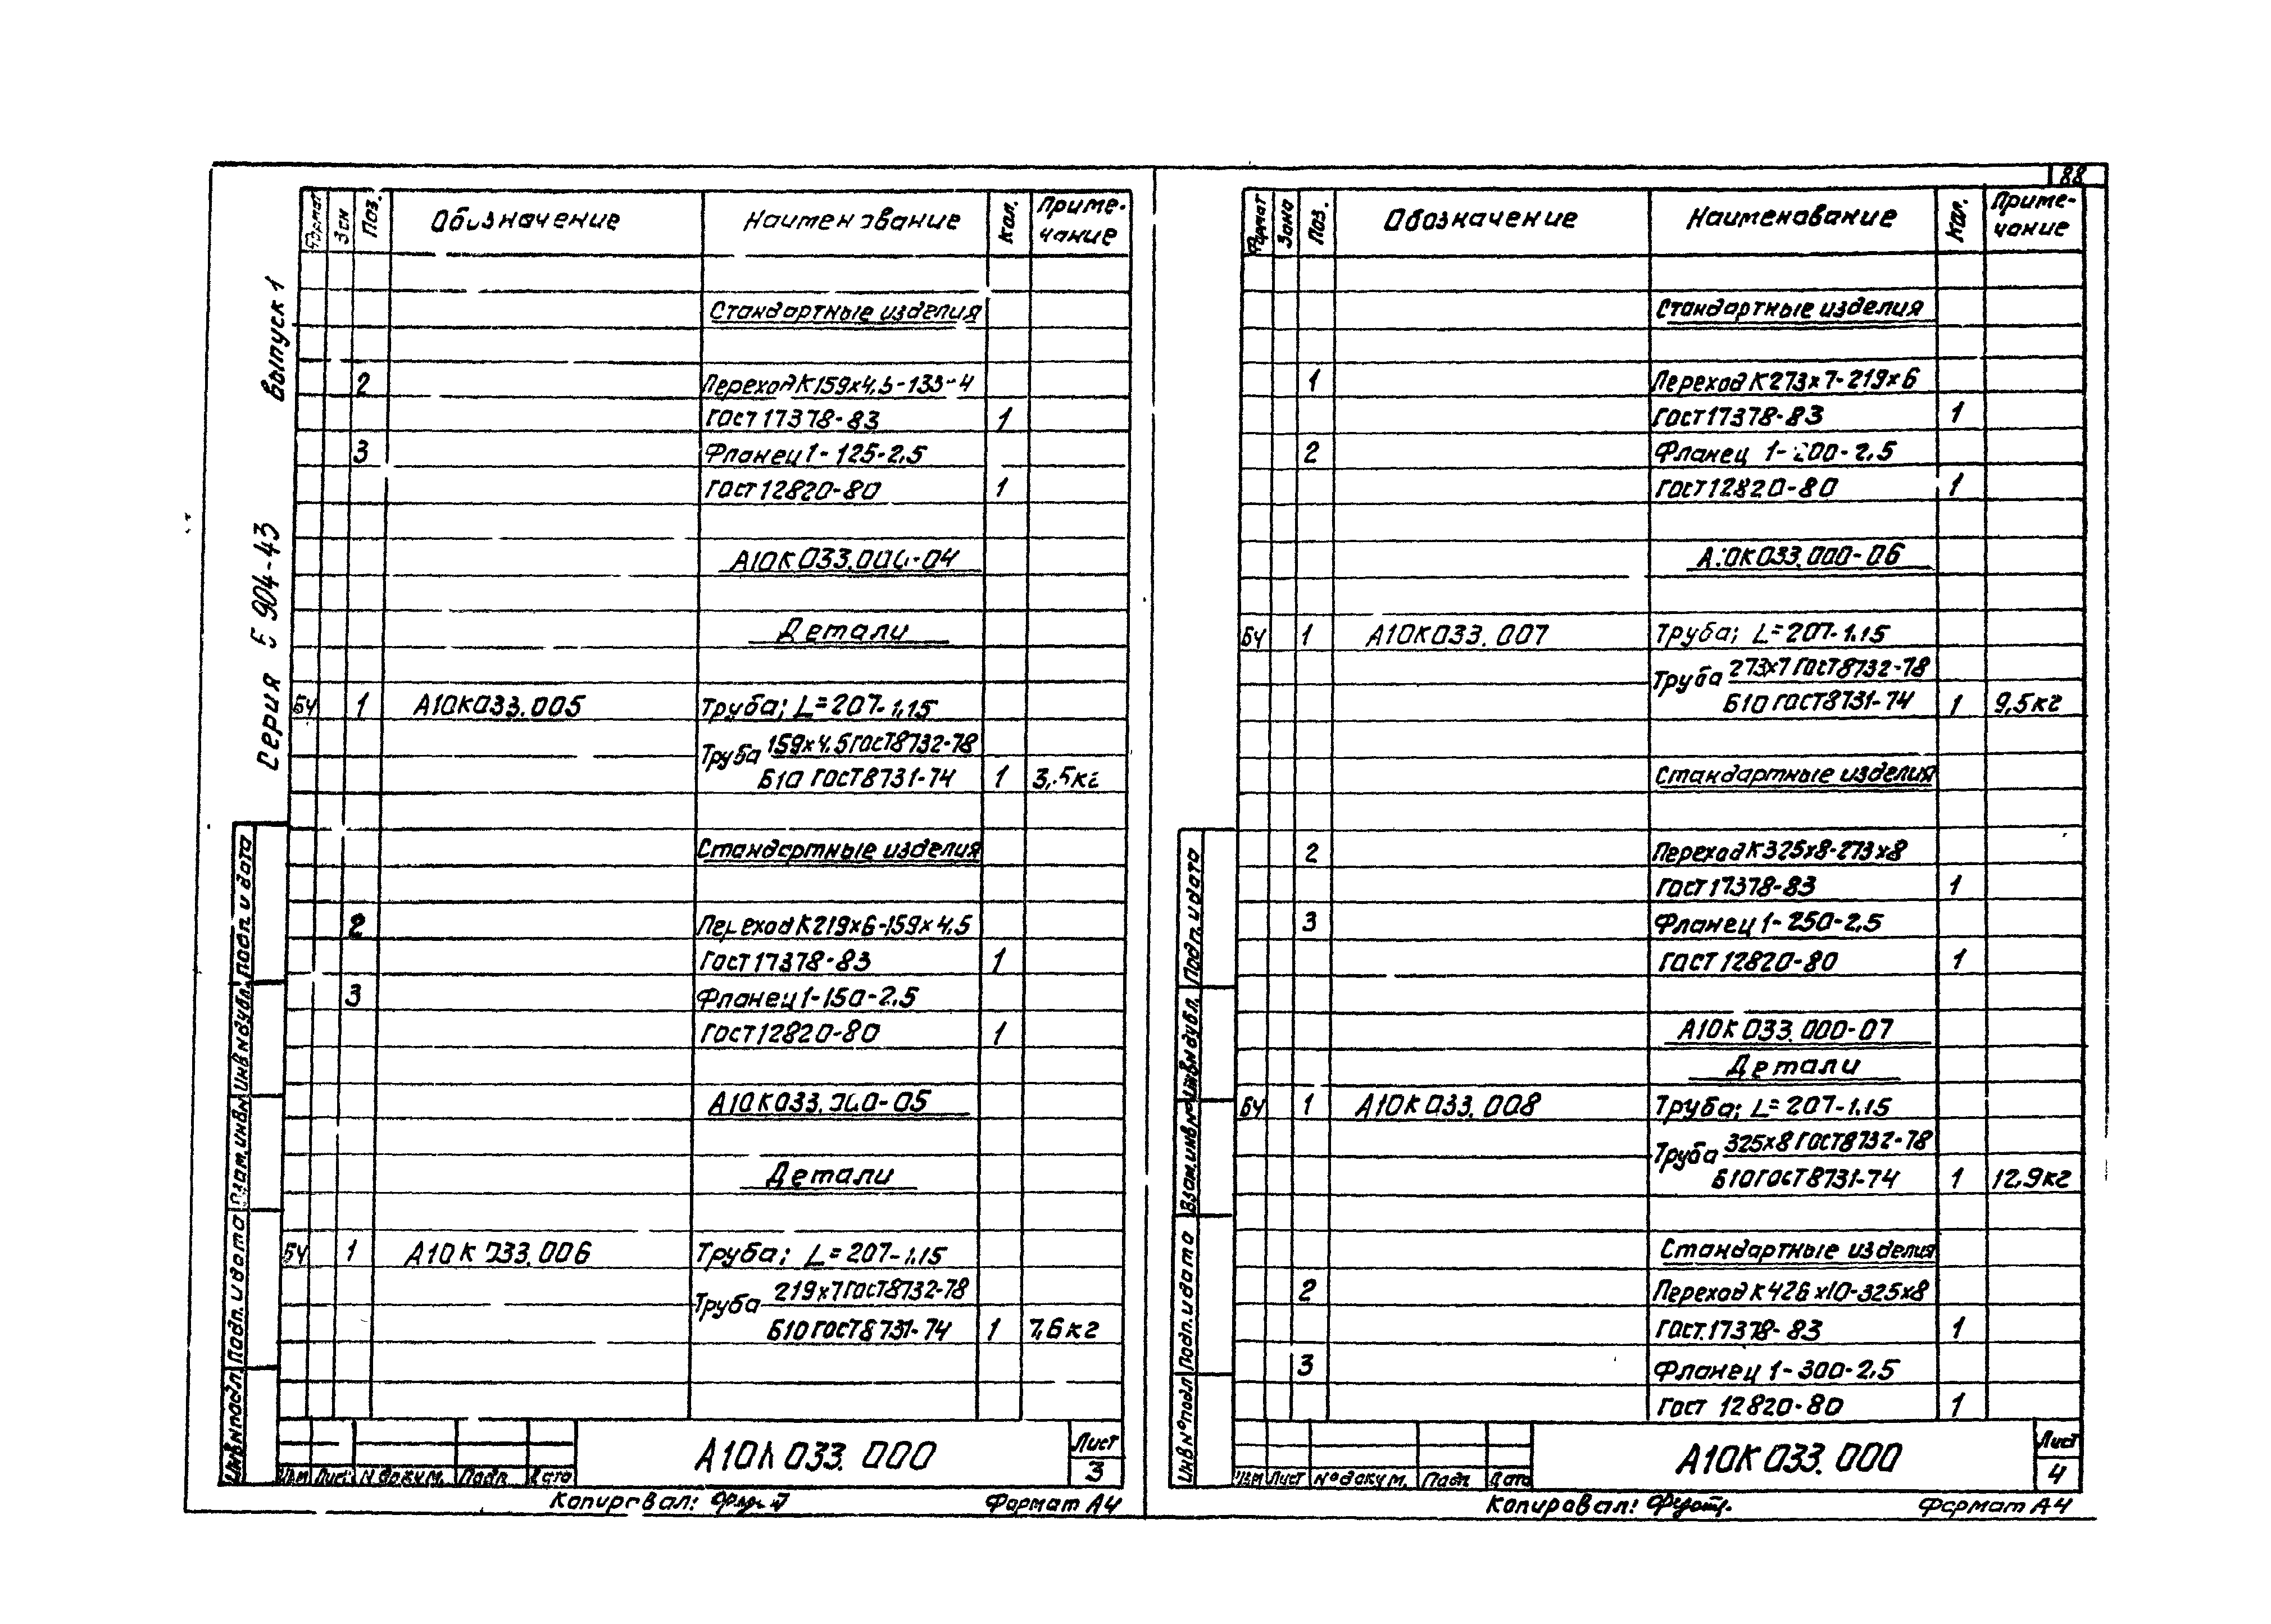 88
Выпуск 1
Серия 5 904-43
Формат Зон Поз. Обозначение Наименование Кол. Приме-
чание
Стандартные изделия
2 Переход К159х4,5-133-4
ГОСТ 17378-83 1
3 Фланец 1-125-2,5
ГОСТ 12820-80 1
А10К033.000-04
Детали
БЧ 1 А10К033.005 Труба; L=207-1,15
Труба 159х4,5 ГОСТ 8732-78
Б10 ГОСТ 8731-74 1 3,5кг
Стандартные изделия
2 Переход К219х6-159х4,5
ГОСТ 17378-83 1
3 Фланец 1-150-2,5
ГОСТ 12820-80 1
А10К033.000-05
Детали
БЧ 1 А10К033.006 Труба; L=207-1,15
Труба 219х7 ГОСТ 8732-78
Б10 ГОСТ 8731-74 1 7,6кг
Инв № подл. Подп. и дата Взам. инв № Инв № дубл. Подп. и дата
Изм Лист № докум. Подп. Дата
А10К033.000
Лист
3
Копировал:
Формат А4
Формат Зона Поз. Обозначение Наименование Кол. Приме-
чание
Стандартные изделия
1 Переход К273х7-219х6
ГОСТ 17378-83 1
2 Фланец 1-200-2,5
ГОСТ 12820-80 1
А10К033.000-06
БЧ 1 А10К033.007 Труба; L=207-1,15
Труба 273х7 ГОСТ 8732-78
Б10 ГОСТ 8731-74 1 9,5кг
Стандартные изделия
2 Переход К325х8-273х8
ГОСТ 17378-83 1
3 Фланец 1-250-2,5
ГОСТ 12820-80 1
А10К033.000-07
Детали
БЧ 1 А10К033.008 Труба; L=207-1,15
Труба 325х8 ГОСТ 8732-78
Б10 ГОСТ 8731-74 1 12,9кг
Стандартные изделия
2 Переход К426х10-325х8
ГОСТ 17378-83 1
3 Фланец 1-300-2,5
ГОСТ 12820-80 1
Инв № подл. Подп. и дата Взам. инв № Инв № дубл. Подп. и дата
Изм Лист № докум. Подп. Дата
А10К033.000
Лист
4
Копировал:
Формат А4